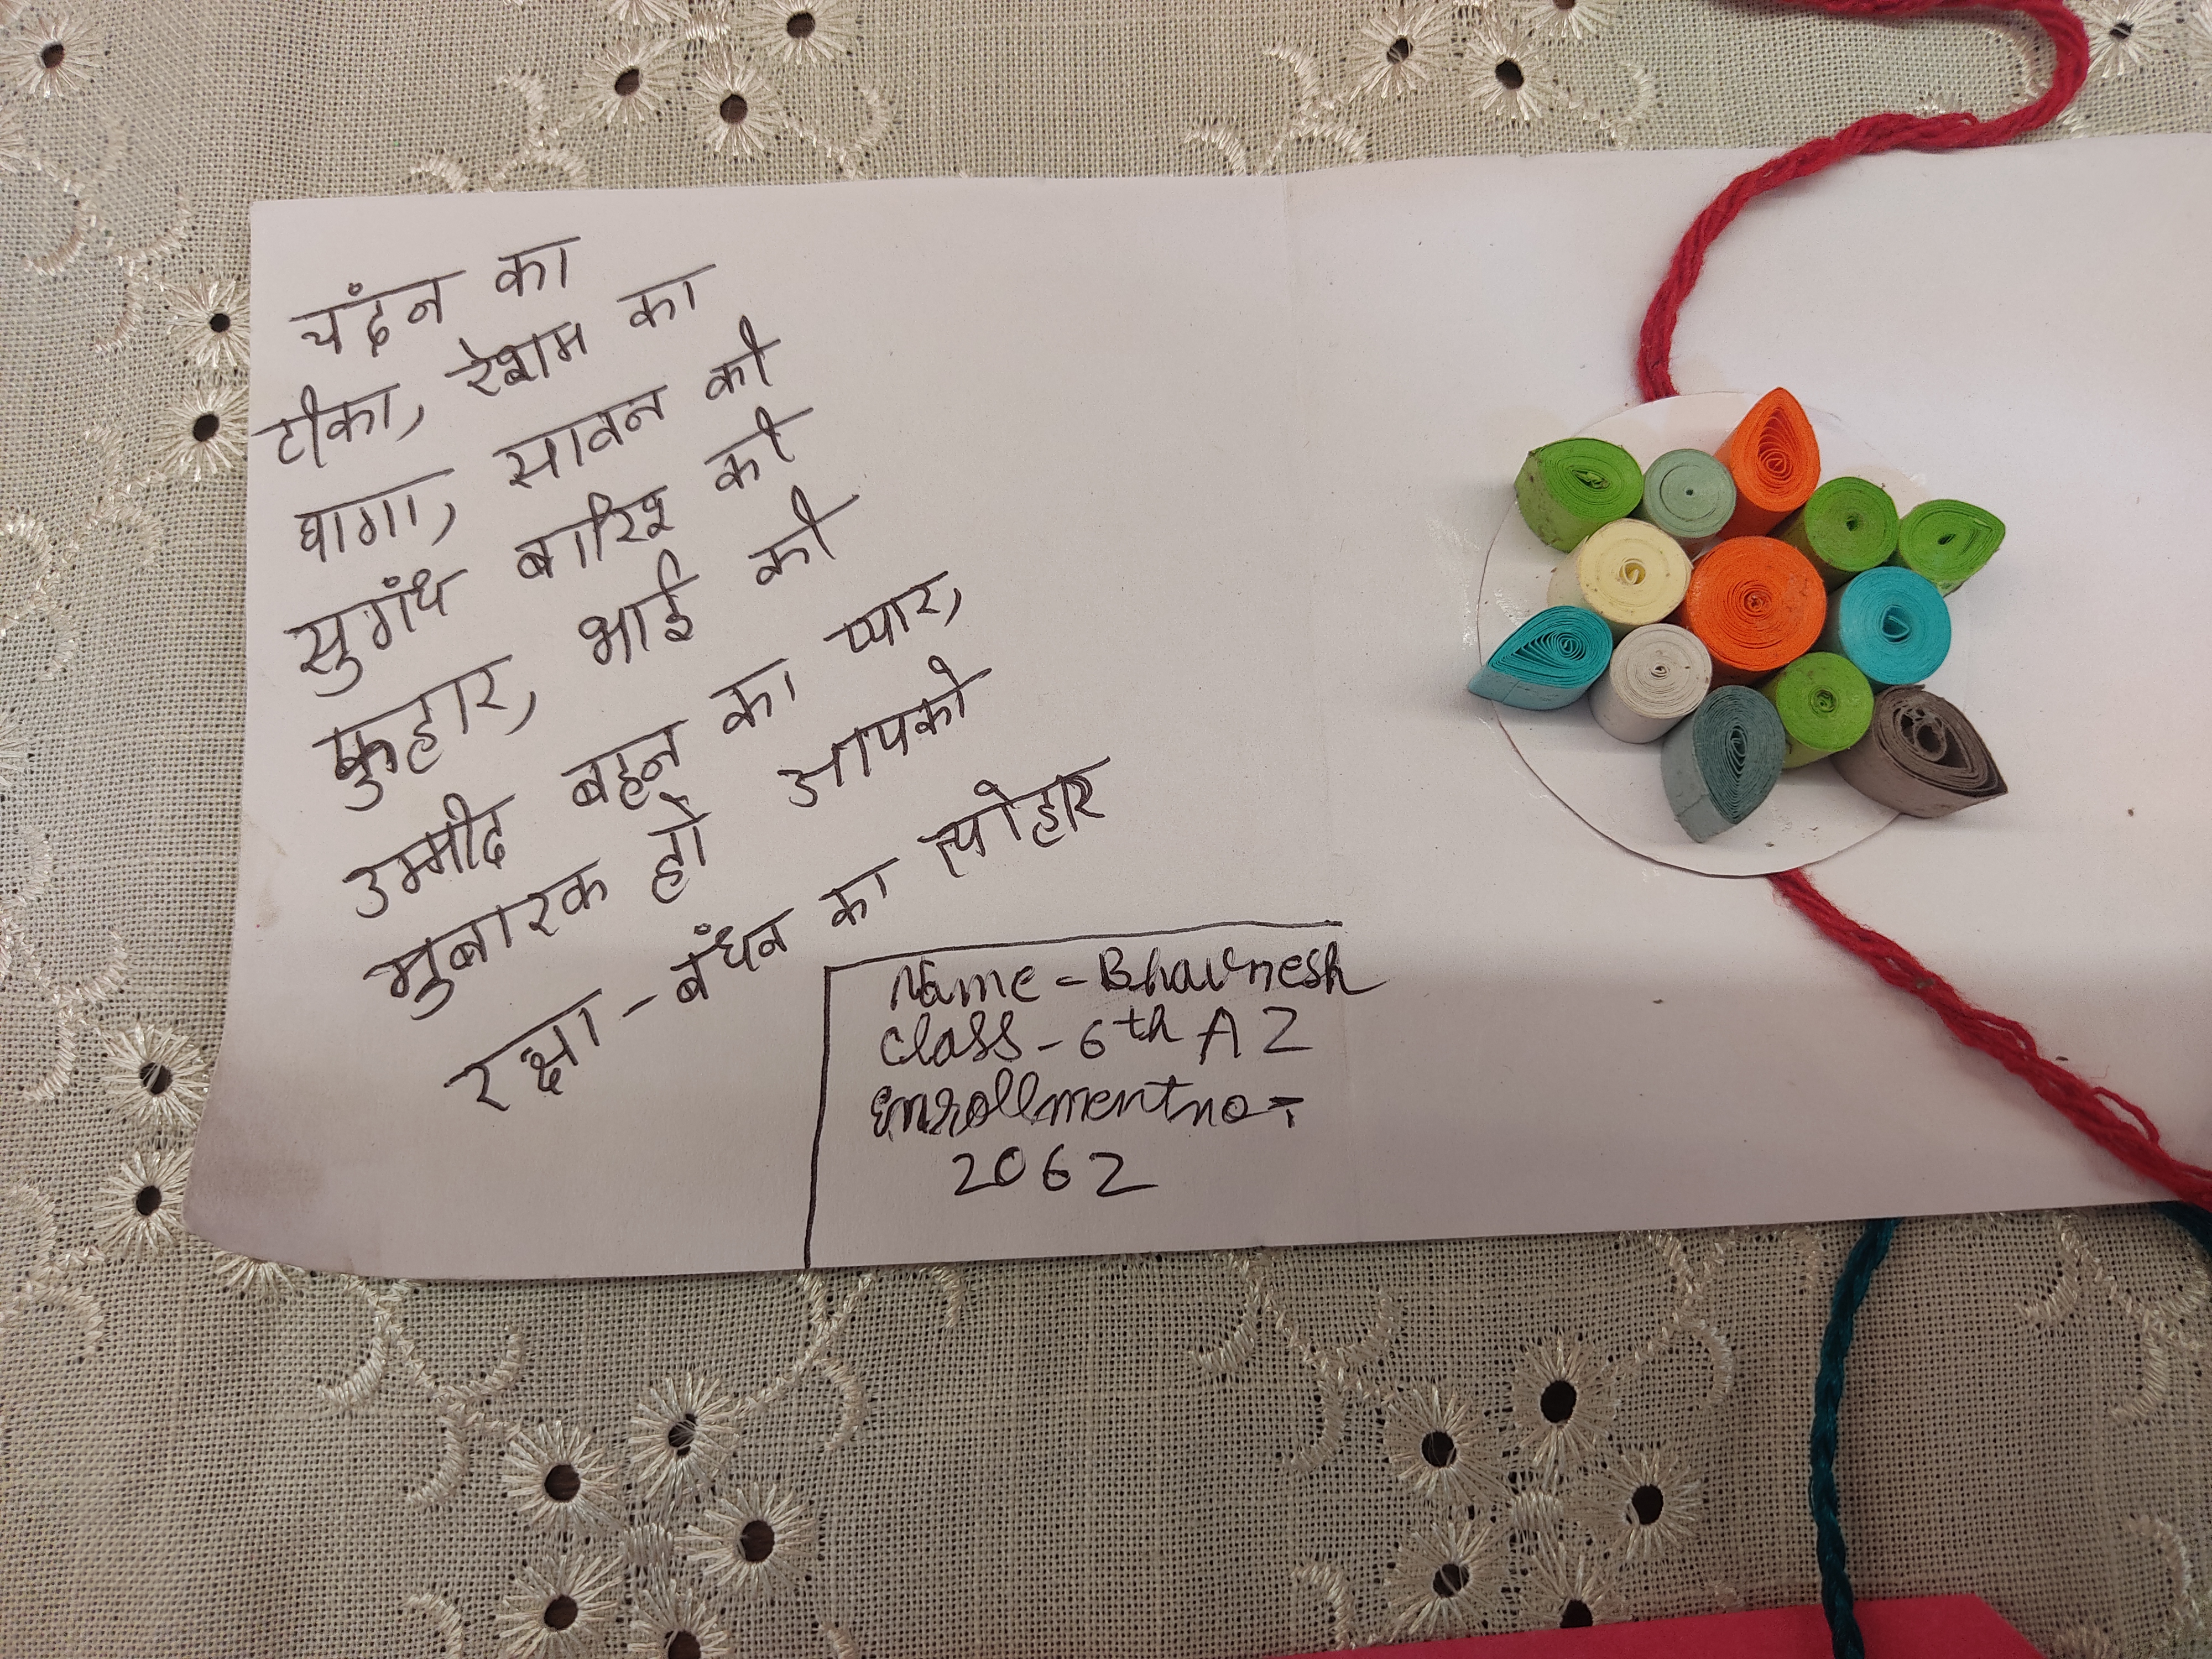 चंदन का
टीका, रेशम का
धागा, सावन की
सुगंध बारिश की
फुहार, भाई की
उम्मीद बहन का प्यार,
मुबारक हो आपको
रक्षा-बंधन का त्योहार
Name - Bhavnesh
Class - 6th A2
Enrollment no -
2062